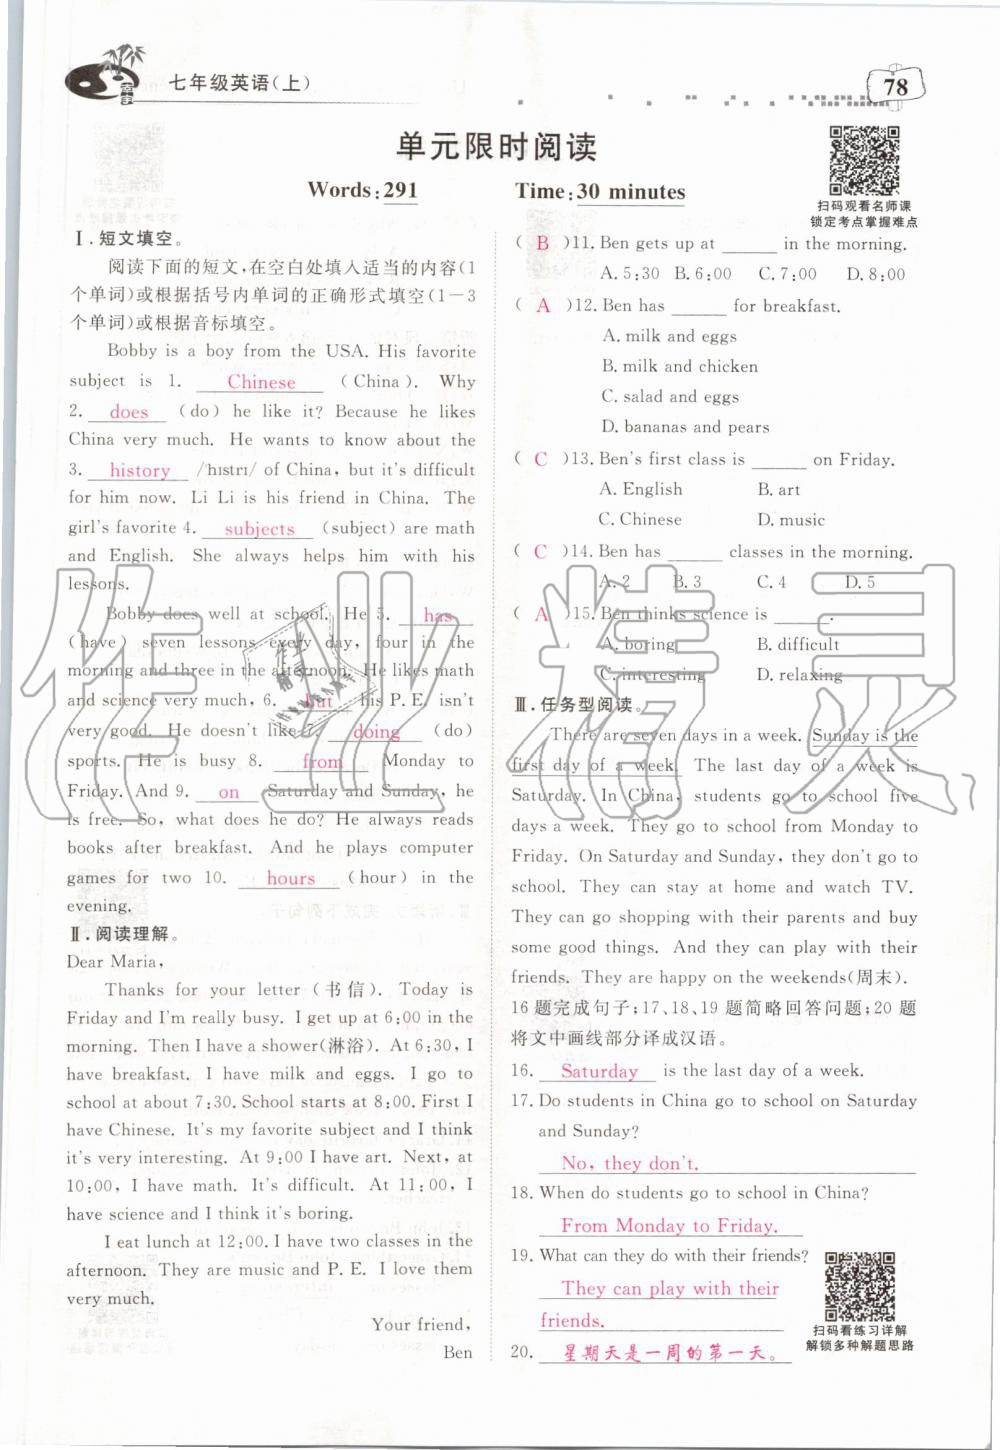 七年级英语(上)
78
单元限时阅读
Words:291
Time:30 minutes
扫码观看名师课
锁定考点掌握难点
Ⅰ.短文填空。
阅读下面的短文,在空白处填入适当的内容(1
个单词)或根据括号内单词的正确形式填空(1－3
个单词)或根据音标填空。
Bobby is a boy from the USA. His favorite
subject is 1. Chinese (China). Why
2. does (do) he like it? Because he likes
China very much. He wants to know about the
3. history /ˈhɪstrɪ/ of China, but it's difficult
for him now. Li Li is his friend in China. The
girl's favorite 4. subjects (subject) are math
and English. She always helps him with his
lessons.
Bobby does well at school. He 5. has
(have) seven lessons every day, four in the
morning and three in the afternoon. He likes math
and science very much, 6. but his P.E. isn't
very good. He doesn't like 7. doing (do)
sports. He is busy 8. from Monday to
Friday. And 9. on Saturday and Sunday, he
is free. So, what does he do? He always reads
books after breakfast. And he plays computer
games for two 10. hours (hour) in the
evening.
Ⅱ.阅读理解。
Dear Maria,
Thanks for your letter (书信). Today is
Friday and I'm really busy. I get up at 6:00 in the
morning. Then I have a shower(淋浴). At 6:30, I
have breakfast. I have milk and eggs. I go to
school at about 7:30. School starts at 8:00. First I
have Chinese. It's my favorite subject and I think
it's very interesting. At 9:00 I have art. Next, at
10:00, I have math. It's difficult. At 11:00, I
have science and I think it's boring.
I eat lunch at 12:00. I have two classes in the
afternoon. They are music and P.E. I love them
very much.
Your friend,
Ben
( B )11. Ben gets up at ______ in the morning.
A. 5:30 B. 6:00 C. 7:00 D. 8:00
( A )12. Ben has ______ for breakfast.
A. milk and eggs
B. milk and chicken
C. salad and eggs
D. bananas and pears
( C )13. Ben's first class is ______ on Friday.
A. English B. art
C. Chinese D. music
( C )14. Ben has ______ classes in the morning.
A. 2 B. 3 C. 4 D. 5
( A )15. Ben thinks science is ______.
A. boring B. difficult
C. interesting D. relaxing
Ⅲ.任务型阅读。
There are seven days in a week. Sunday is the
first day of a week. The last day of a week is
Saturday. In China, students go to school five
days a week. They go to school from Monday to
Friday. On Saturday and Sunday, they don't go to
school. They can stay at home and watch TV.
They can go shopping with their parents and buy
some good things. And they can play with their
friends. They are happy on the weekends(周末).
16题完成句子;17、18、19题简略回答问题;20题
将文中画线部分译成汉语。
16. Saturday is the last day of a week.
17. Do students in China go to school on Saturday
and Sunday?
No, they don't.
18. When do students go to school in China?
From Monday to Friday.
19. What can they do with their friends?
They can play with their
friends.
20. 星期天是一周的第一天。
扫码看练习详解
解锁多种解题思路
作业精灵